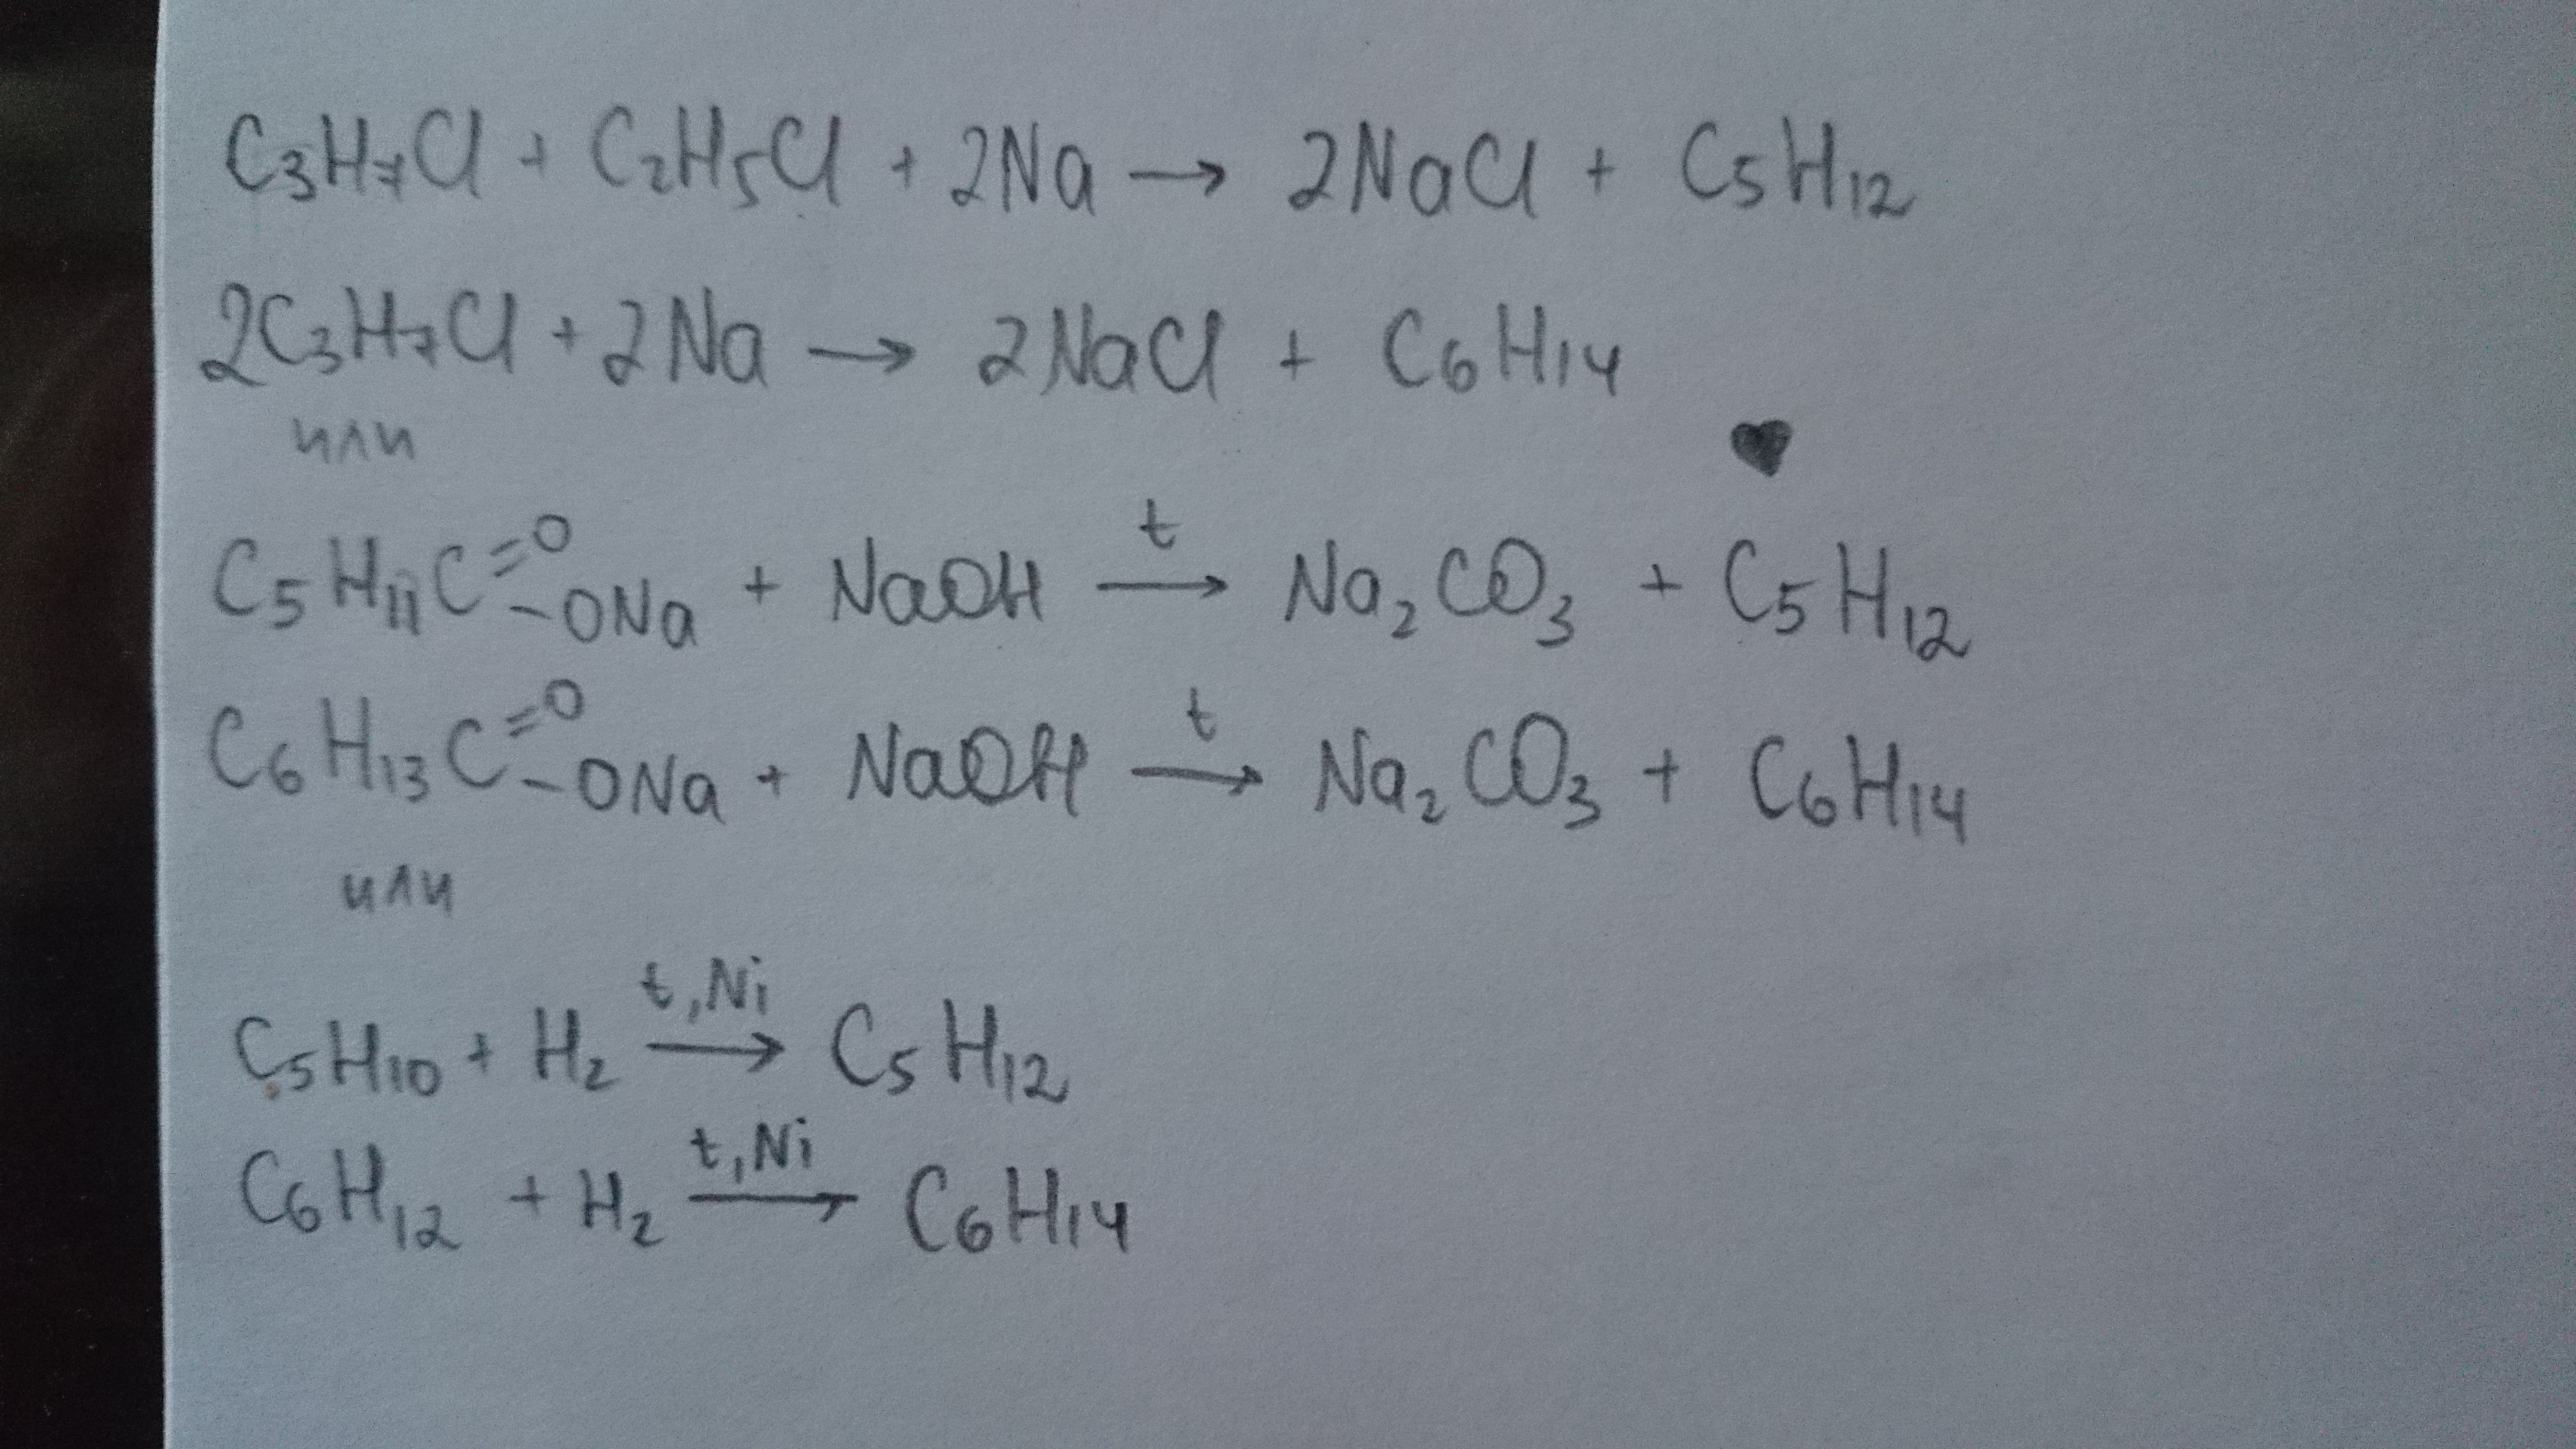 C₃H₇Cl + C₂H₅Cl + 2Na → 2NaCl + C₅H₁₂
2C₃H₇Cl + 2Na → 2NaCl + C₆H₁₄
или
t
C₅H₁₁C=O-ONa + NaOH → Na₂CO₃ + C₅H₁₂
t
C₆H₁₃C=O-ONa + NaOH → Na₂CO₃ + C₆H₁₄
или
t, Ni
C₅H₁₀ + H₂ → C₅H₁₂
t, Ni
C₆H₁₂ + H₂ → C₆H₁₄